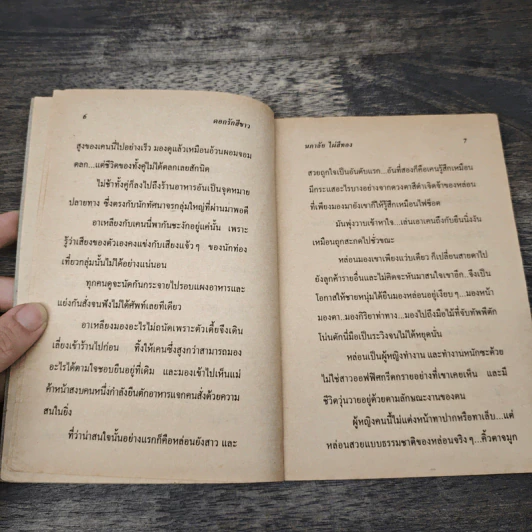 ๖
ดอกรักสีขาว
สูงของเคนนี่ไปอย่างเร็ว มองดูแล้วเหมือนอ้วนผอมจอม
ตลก...แต่ชีวิตของทั้งคู่ไม่ได้ตลกเลยสักนิด
ไม่ช้าทั้งคู่ก็ลงไปถึงร้านอาหารอันเป็นจุดหมาย
ปลายทาง ซึ่งตรงกับนักทัศนาจรกลุ่มใหญ่ที่ผ่านมาพอดี
อาเหลียงกับเคนนี่พากันชะงักอยู่แค่นั้น เพราะ
รู้ว่าเสียงของตัวเองคงแข่งกับเสียงแจ้วๆ ของนักท่อง
เที่ยวกลุ่มนั้นไม่ได้อย่างแน่นอน
ทุกคนดูจะนัดกันกระจายไปรอบแผงอาหารและ
แย่งกันสั่งจนฟังไม่ได้ศัพท์เลยทีเดียว
อาเหลียงมองอะไรไม่ถนัดเพราะตัวเตี้ยจึงเดิน
เลี่ยงเข้าร้านไปก่อน ทิ้งให้เคนซึ่งสูงกว่าสามารถมอง
อะไรได้ตามใจชอบยืนอยู่ที่เดิม และมองเข้าไปเห็นแม่
ค้าหน้าสงบคนหนึ่งกำลังยืนตักอาหารแจกคนสั่งด้วยความ
สนใจยิ่ง
ที่ว่าน่าสนใจนั้นอย่างแรกก็คือหล่อนยังสาว และ
มกาอัย ไผ่สีทอง
๗
สวยถูกใจเป็นอันดับแรก...อันที่สองก็คือเคนรู้สึกเหมือน
มีกระแสอะไรบางอย่างจากดวงตาสีดำเจิดจ้าของหล่อน
ที่เพียงมองมายังเขาก็ให้รู้สึกเหมือนไฟช็อต
มันพุ่งวาบเข้าหาใจ...เล่นเอาเคนถึงกับยืนนิ่งงัน
เหมือนถูกสะกดไปชั่วขณะ
หล่อนมองเขาเพียงแว่บเดียว ก็เปลี่ยนสายตาไป
ยังลูกค้ารายอื่นและไม่คิดจะหันมาสนใจเขาอีก...จึงเป็น
โอกาสให้ชายหนุ่มได้ยืนมองหล่อนอยู่เงียบๆ...มองหน้า
มองตา..มองกิริยาท่าทาง...มองไปถึงมือไม้ที่จับทัพพีตัก
โน่นตักนี่มือเป็นระวิงจนไม่ได้หยุดนั่น
หล่อนเป็นผู้หญิงทำงาน และทำงานหนักซะด้วย
ไม่ใช่สาวออฟฟิศกรีดกรายอย่างที่เขาเคยเห็น และมี
ชีวิตวุ่นวายอยู่ด้วยตามลักษณะงานของตน
ผู้หญิงคนนี้ไม่แต่งหน้าทาปากหรือทาเล็บ...แต่
หล่อนสวยแบบธรรมชาติของหล่อนจริงๆ...คิ้วตาจมูก